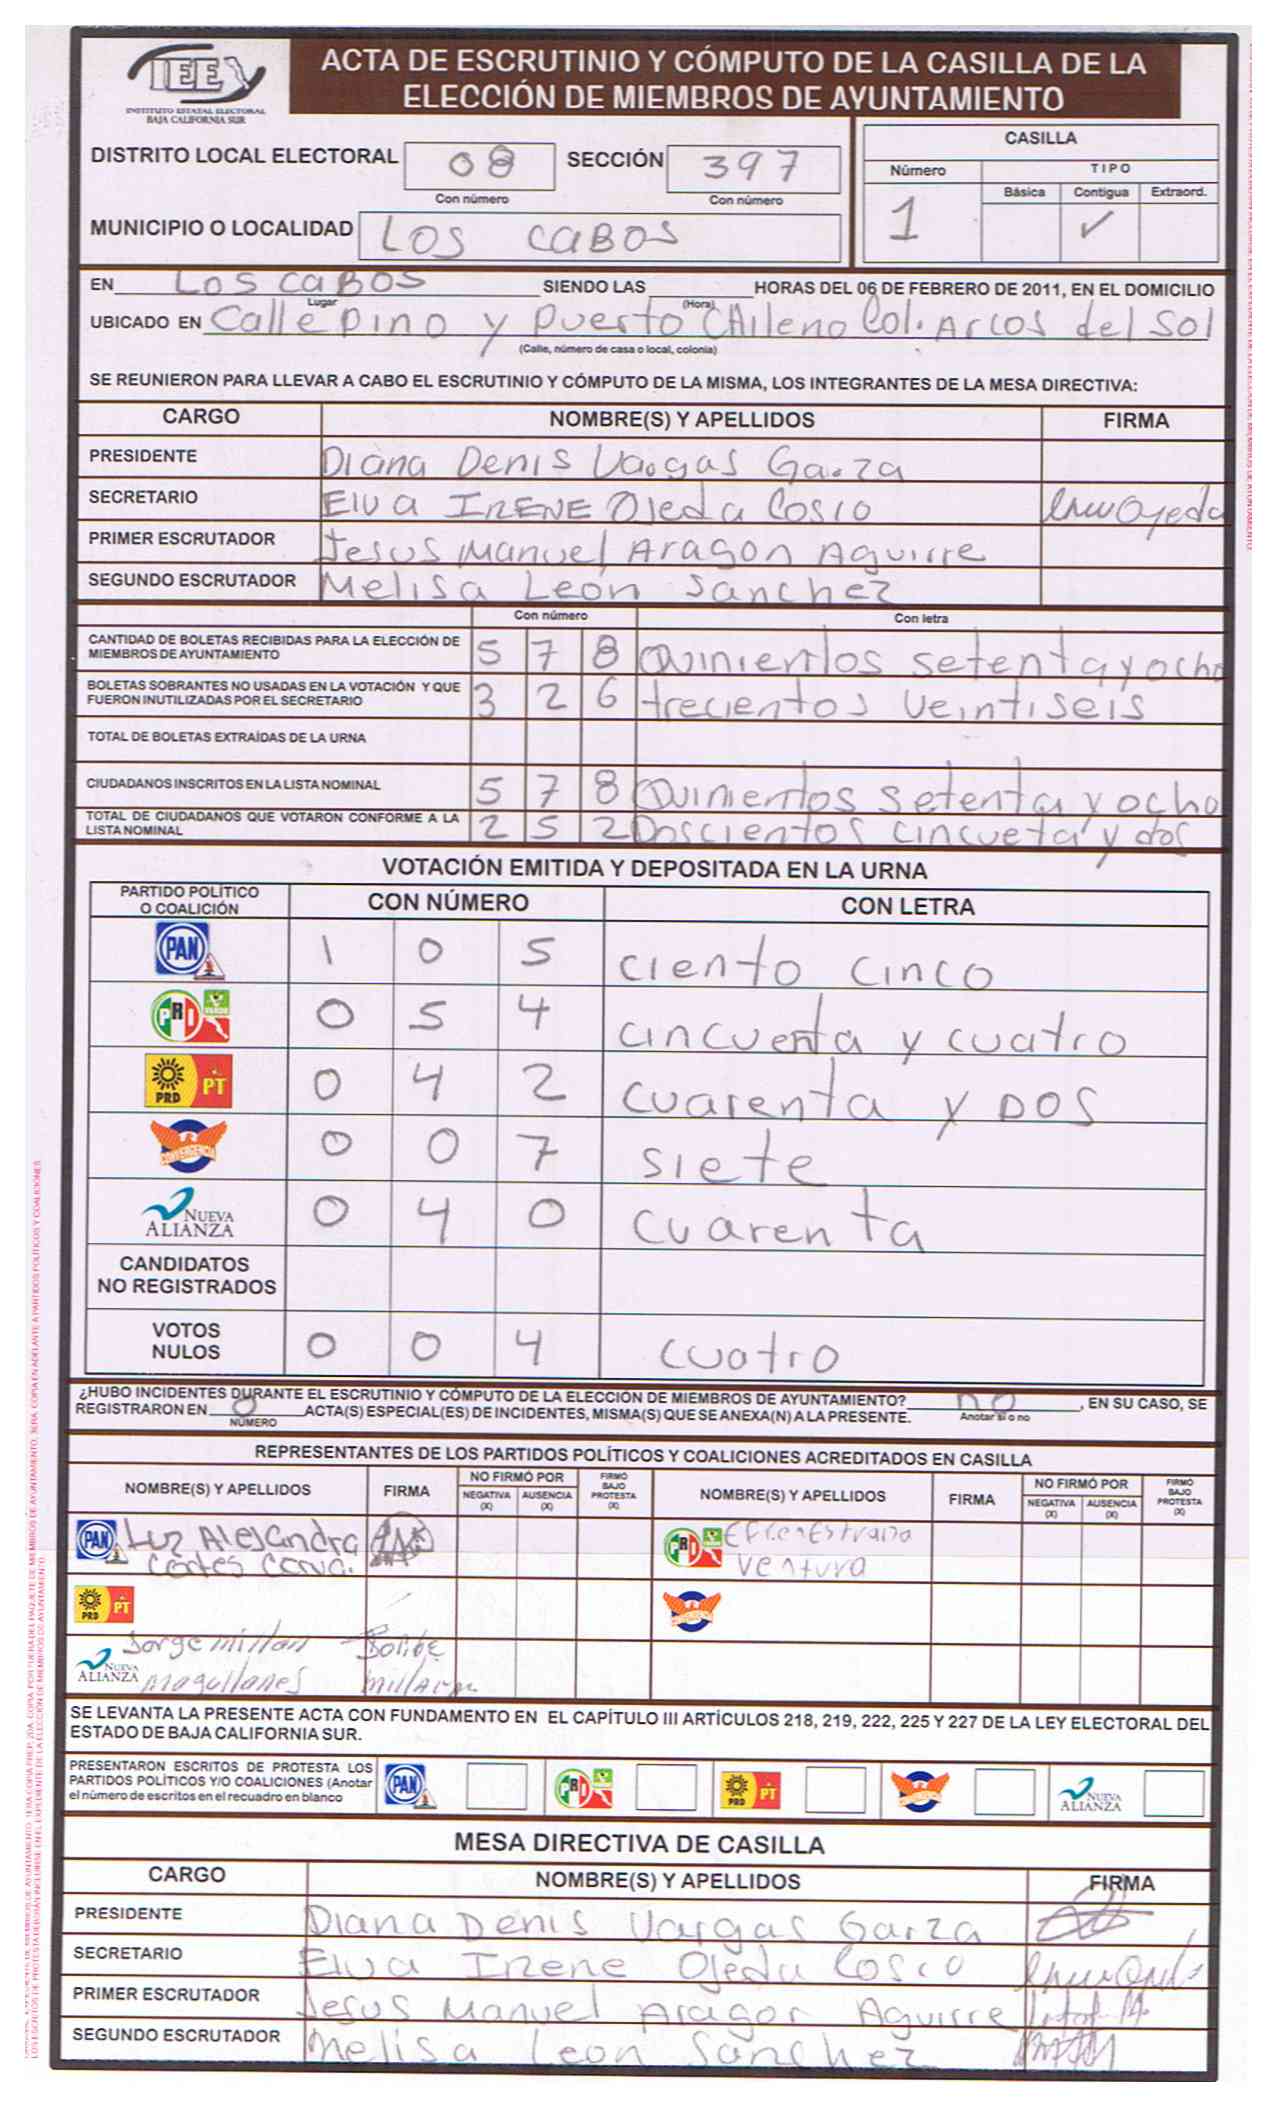 IEE
INSTITUTO ESTATAL ELECTORAL
BAJA CALIFORNIA SUR
ACTA DE ESCRUTINIO Y CÓMPUTO DE LA CASILLA DE LA
ELECCIÓN DE MIEMBROS DE AYUNTAMIENTO
DISTRITO LOCAL ELECTORAL 08 SECCIÓN 397
Con número Con número
MUNICIPIO O LOCALIDAD LOS CABOS
CASILLA
Número TIPO
Básica Contigua Extraord.
1 ✓
EN LOS CABOS SIENDO LAS HORAS DEL 06 DE FEBRERO DE 2011, EN EL DOMICILIO
Lugar (Hora)
UBICADO EN Calle Pino y Puerto CHileno Col. Arcos del Sol
(Calle, número de casa o local, colonia)
SE REUNIERON PARA LLEVAR A CABO EL ESCRUTINIO Y CÓMPUTO DE LA MISMA, LOS INTEGRANTES DE LA MESA DIRECTIVA:
CARGO NOMBRE(S) Y APELLIDOS FIRMA
PRESIDENTE Diana Denis Vargas Garza
SECRETARIO Elva IRENE Ojeda Cosio
PRIMER ESCRUTADOR Jesus Manuel Aragon Aguirre
SEGUNDO ESCRUTADOR Melisa León Sanchez
Con número Con letra
CANTIDAD DE BOLETAS RECIBIDAS PARA LA ELECCIÓN DE
MIEMBROS DE AYUNTAMIENTO 5 7 8 Quinientos setenta y ocho
BOLETAS SOBRANTES NO USADAS EN LA VOTACIÓN Y QUE
FUERON INUTILIZADAS POR EL SECRETARIO 3 2 6 trecientos veintiseis
TOTAL DE BOLETAS EXTRAÍDAS DE LA URNA
CIUDADANOS INSCRITOS EN LA LISTA NOMINAL 5 7 8 Quinientos setenta y ocho
TOTAL DE CIUDADANOS QUE VOTARON CONFORME A LA
LISTA NOMINAL 2 5 2 Doscientos cincueta y dos
VOTACIÓN EMITIDA Y DEPOSITADA EN LA URNA
PARTIDO POLÍTICO
O COALICIÓN CON NÚMERO CON LETRA
PAN 1 0 5 ciento cinco
PRI VERDE 0 5 4 cincuenta y cuatro
PRD PT 0 4 2 cuarenta y DOS
CONVERGENCIA 0 0 7 siete
NUEVA ALIANZA 0 4 0 cuarenta
CANDIDATOS
NO REGISTRADOS
VOTOS
NULOS 0 0 4 cuatro
¿HUBO INCIDENTES DURANTE EL ESCRUTINIO Y CÓMPUTO DE LA ELECCIÓN DE MIEMBROS DE AYUNTAMIENTO? no , EN SU CASO, SE
REGISTRARON EN 0 ACTA(S) ESPECIAL(ES) DE INCIDENTES, MISMA(S) QUE SE ANEXA(N) A LA PRESENTE. Anotar si o no
NÚMERO
REPRESENTANTES DE LOS PARTIDOS POLÍTICOS Y COALICIONES ACREDITADOS EN CASILLA
NOMBRE(S) Y APELLIDOS FIRMA NO FIRMÓ POR NEGATIVA (X) AUSENCIA (X) FIRMÓ BAJO PROTESTA (X) NOMBRE(S) Y APELLIDOS FIRMA NO FIRMÓ POR NEGATIVA (X) AUSENCIA (X) FIRMÓ BAJO PROTESTA (X)
PAN Luz Alejandra PRI VERDE Estrada
Cortes Ventura
PRD PT CONVERGENCIA
NUEVA ALIANZA Jorge millan
Magallanes
SE LEVANTA LA PRESENTE ACTA CON FUNDAMENTO EN EL CAPÍTULO III ARTÍCULOS 218, 219, 222, 225 Y 227 DE LA LEY ELECTORAL DEL
ESTADO DE BAJA CALIFORNIA SUR.
PRESENTARON ESCRITOS DE PROTESTA LOS
PARTIDOS POLÍTICOS Y/O COALICIONES (Anotar
el número de escritos en el recuadro en blanco
PAN PRI VERDE PRD PT CONVERGENCIA NUEVA ALIANZA
MESA DIRECTIVA DE CASILLA
CARGO NOMBRE(S) Y APELLIDOS FIRMA
PRESIDENTE Diana Denis Vargas Garza
SECRETARIO Elva Irene Ojeda Cosio
PRIMER ESCRUTADOR Jesus Manuel Aragon Aguirre
SEGUNDO ESCRUTADOR Melisa Leon Sanchez